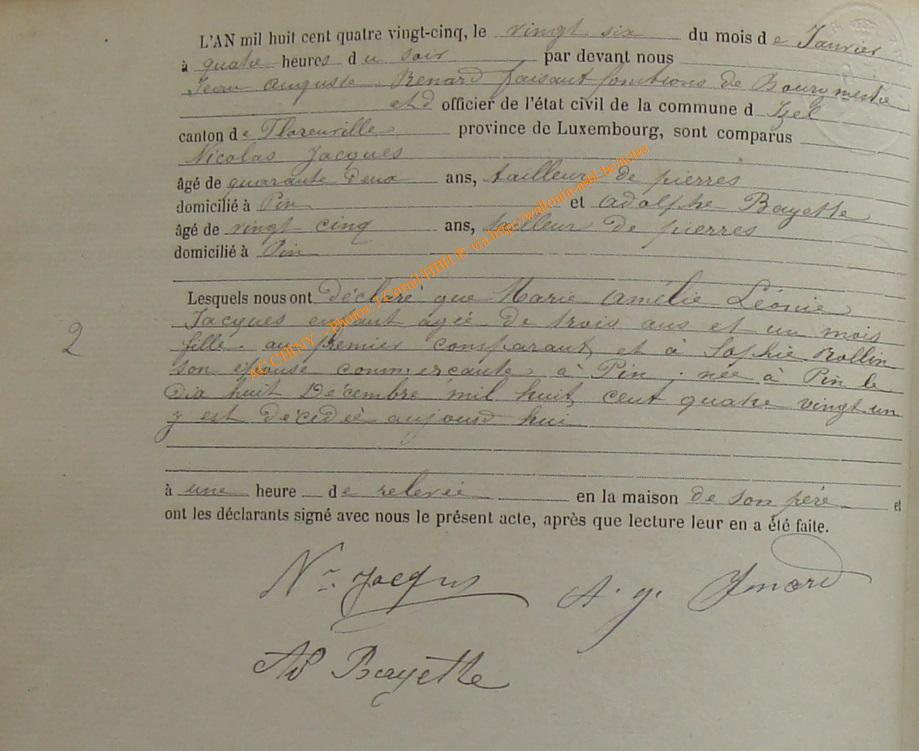 L'AN mil huit cent quatre vingt-cinq, le vingt six du mois de Janvier
à quatre heures du soir par devant nous
Jean Auguste Renard faisant fonctions de Bourgmestre
et d officier de l'état civil de la commune d Izel
canton de Florenville province de Luxembourg, sont comparus
Nicolas Jacques
âgé de quarante deux ans, tailleur de pierres
domicilié à Pin et Adolphe Bayette
âgé de vingt cinq ans, tailleur de pierres
domicilié à Pin
Lesquels nous ont déclaré que Marie Amélie Léonie
Jacques enfant agée de trois ans et un mois
2
fille au premier comparant et à Sophie Rollin
son épouse commercante à Pin née à Pin le
dix huit Décembre mil huit cent quatre vingt un
y est décédée aujourd hui
à une heure de relevée en la maison de son père et
ont les déclarants signé avec nous le présent acte, après que lecture leur en a été faite.
Nas Jacques
Ad Bayette